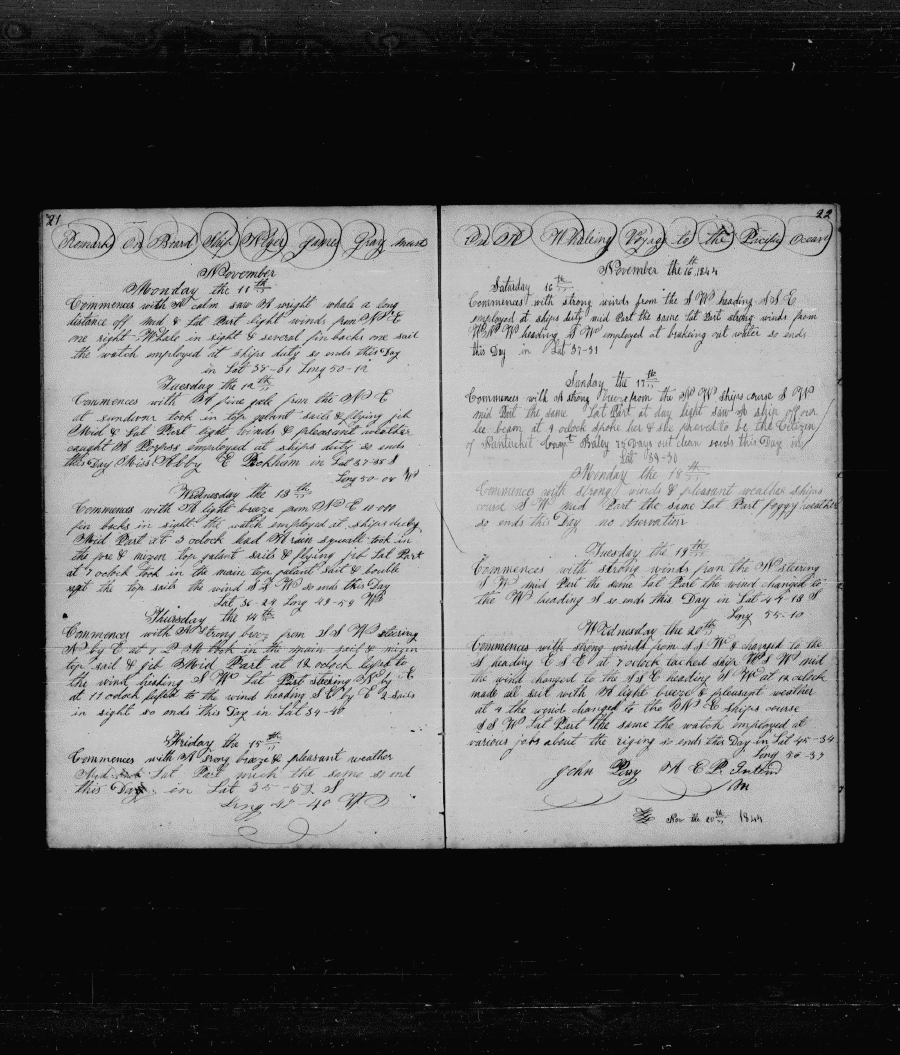 21
Remarks On Board Ship Alger James Gray Mast
November
Monday the 11th
Commences with A calm saw A wright whale a long
distance off Mid & Lat Part light winds from N E
one right Whale in sight & several fin backs one sail
the watch employed at ships duty so ends this Day
in Lat 38-31 Long 50-12
Tuesday the 12th
Commences with A fine from the N E
at sundown took in top galant sails & flying jib
Mid & Lat Part light winds & pleasant weather
caught A Porpss employed at ships duty so ends
this Day Miss Abby E Peckham in Lat 37-38 S
Long 50-04 W
Wednesday the 13th
Commences with A light breeze from N E
fin backs in sight the watch employed at ships duty
Mid Part at 3 oclock had A rain squall took in
the fore & mizen top galant sails & flying jib Lat Part
at 7 oclock took in the main top galant sail & double
the top sails the wind S S W so ends this Day
Lat 36-29 Long 49-59 W
Thursday the 14th
Commences with A strong breez from S S W steering
N by E at 1 P M took in the main sail & mizen
top sail & jib Mid Part at 12 oclock to
the wind heading S W Lat Part steering N by E
at 11 oclock to the wind heading S E by E 2 sails
in sight so ends this Day in Lat 34-40
Friday the 15th
Commences with A strong breeze & pleasant weather
Mid Lat Part much the same so end
this Day in Lat 35-53 S
Long 48-40 W
22
On A Whaling Voyag to the Pacific Ocean
November the 16th 1844
Saturday 16th
Commences with strong winds from the S W heading S S E
employed at ships duty mid Part the same Lat Part strong winds from
W S W heading S W employed at breaking out water so ends
this Day in Lat 37-31
Sunday the 17th
Commences with A strong breeze from the N W ships course S W
mid Part the same Lat Part at day light saw A ship off our
lee beam at 9 oclock spoke her & she proved to be the Citizen
of Nantucket Capt Baley 75 Days out clean so ends this Day in
Lat 39-30
Monday the 18th
Commences with strong winds & pleasant weather ships
course S W mid Part the same Lat Part foggy weather
so ends this Day no observation
Tuesday the 19th
Commences with strong winds from the N steering
S W mid Part the same Lat Part the wind changed to
the W heading S so ends this Day in Lat 44-18 S
Long 55-10
Wednesday the 20th
Commences with strong winds from S S W & changed to the
S heading E S E at 7 oclock tacked ship W S W mid
the wind changed to the S S E heading S W at 12 oclock
made all sail with A light breeze & pleasant weather
at 4 the wind changed to the N E ships course
S S W Lat Part the same the watch employed at
various jobs about the riging so ends this Day in Lat 45-34
Long 56-37
John Perry
Nov the 20th 1844